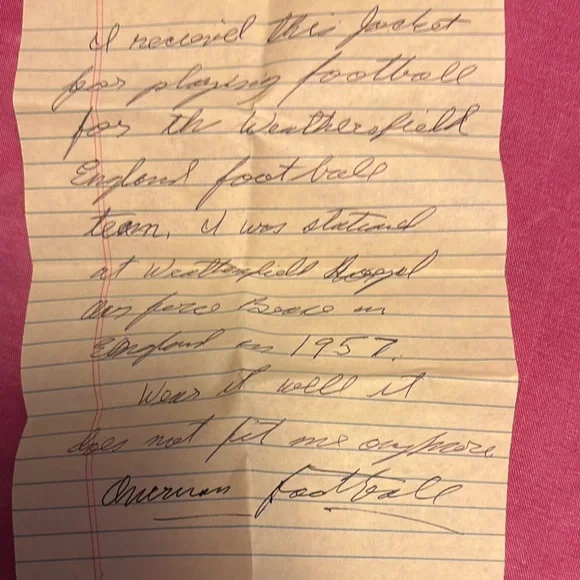 I recieved this Jacket
for playing football
for th Weathersfield
England football
team. I was stationed
at Weathersfield Royal
air force Base in
England in 1957.
Wear it well it
does not fit me anymore
American Football